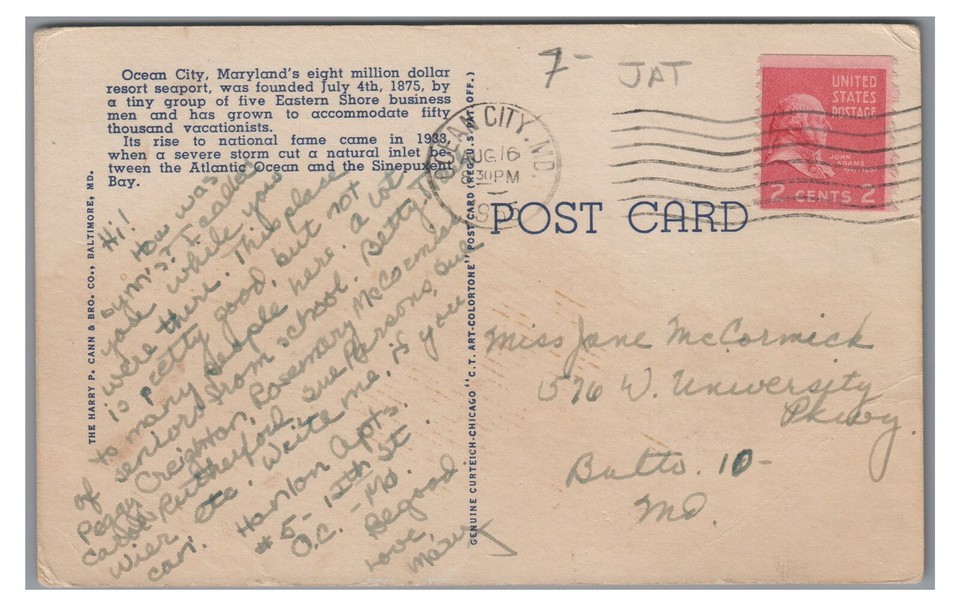 Ocean City, Maryland's eight million dollar
resort seaport, was founded July 4th, 1875, by
a tiny group of five Eastern Shore business
men and has grown to accommodate fifty
thousand vacationists.
Its rise to national fame came in 1933,
when a severe storm cut a natural inlet be-
tween the Atlantic Ocean and the Sinepuxent
Bay.
THE HARRY P. CANN & BRO. CO., BALTIMORE, MD.
Hi!
How was
Lynn's? I called
you while you
were there. This place
is pretty good, but not
to many people here. a lot
of seniors from school. Betty
Peggy Creighton, Rosemary McCormick
Carol Rutherford, Sue Parsons, Sue
Wier, etc. Write me, if you
can.
Hanlon Apts.
#5 - 12th St.
O.C. - Md.
Be good
Love,
GENUINE CURTEICH-CHICAGO "C.T. ART-COLORTONE" POST CARD (REG. U.S. PAT. OFF.)
7-
JAT
OCEAN CITY, MD.
AUG 16
8 30 PM
UNITED
STATES
POSTAGE
JOHN
ADAMS
2 CENTS 2
POST CARD
Miss Jane McCormick
576 W. University
Pkwy.
Balto. 10 -
Md.